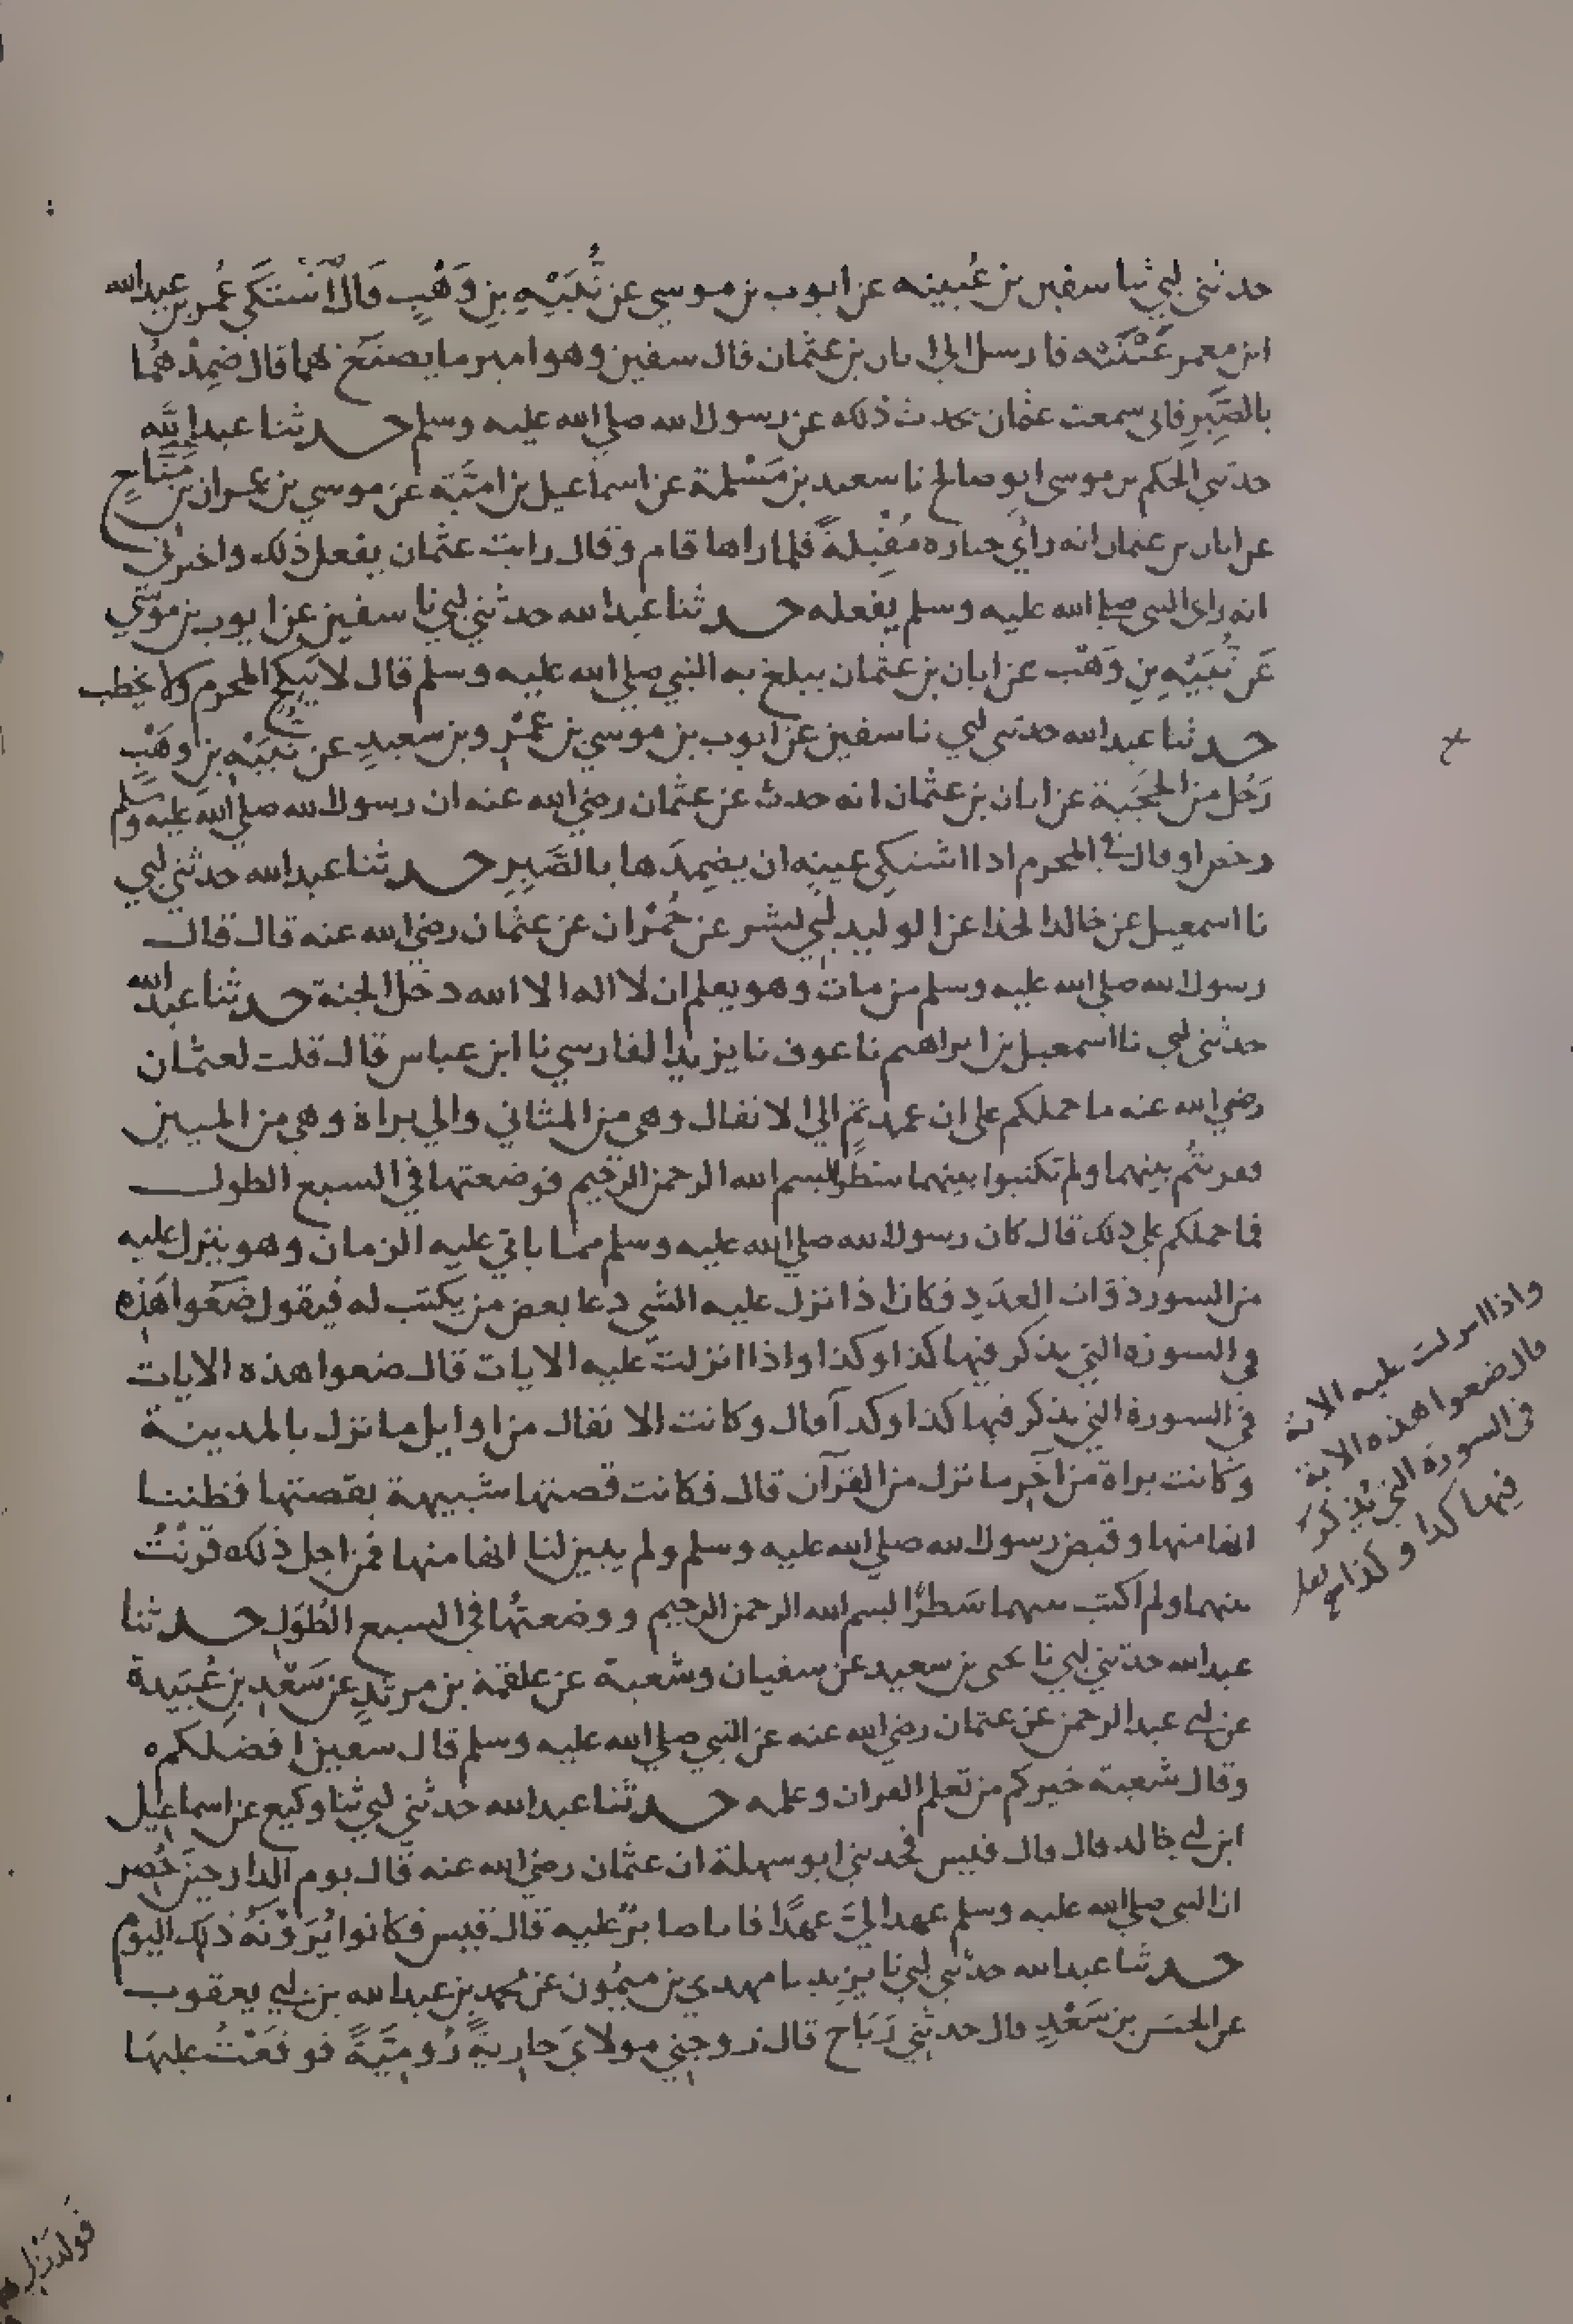 حدثني ابي ثنا سفين بن عُيينه عن ايوب بن موسي عن نُبَيْهِ بنِ وَهْبٍ قال اشتكي عُمر بن عبد الله
ابن معمر عَيْنَيْه فارسل الي ابان بن عثمان قال سفين وهو امير ما يصنَع بهما قال ضَمِدْهُما
بالصَّبِرِ فاني سمعت عثمان يحدث ذلك عن رسول الله صلي الله عليه وسلم حدثنا عبد الله
حدثني الحكم بن موسي ابو صالح نا سعيد بن مَسْلمة عن اسماعيل بن امَيَّة عن موسي بن عمران بن مَنَّاحٍ
عن ابان بن عثمان انه رأي جنازه مُقْبِلةً فلما راها قام وقال رايت عثمان يفعل ذلك واخبرني
انه راي النبي صلي الله عليه وسلم يفعله حدثنا عبد الله حدثني ابي نا سفين عن ايوب بن موسي
عن نُبَيْهِ بنِ وَهْب عن ابان بن عثمان يبلغ به النبي صلي الله عليه وسلم قال لا ينكح المحرم ولا يخطب
حدثنا عبد الله حدثني ابي نا سفين عن ايوب بن موسي بن عَمْرِو بن سعيدٍ عن نُبَيْهِ بن وهْبٍ
رَجُل من الحَجَبة عن ابان بن عثمان انه حدث عن عثمان رضي الله عنه ان رسول الله صلي الله عليه وسلم
رخص او قال في المحرم اذا اشتكي عينه ان يضمِدَها بالصَّبِرِ حدثنا عبد الله حدثني ابي
نا اسمعيل عن خالد الحذا عن الوليد ابي بشر عن حُمْران عن عثمان رضي الله عنه قال قال
رسول الله صلي الله عليه وسلم من مات وهو يعلم ان لا اله الا الله دخل الجنة حدثنا عبد الله
حدثني ابي نا اسمعيل بن ابراهيم نا عوف نا يزيد الفارسي نا ابن عباس قال قلت لعثمان
رضي الله عنه ما حملكم علي ان عمدتم الي الانفال وهي من المثاني والي براة وهي من المبين
فقرنتُم بينهما ولم تكتبوا بينهما سَطْرا بسم الله الرحمن الرحيم فوضعتها في السبع الطول
فما حملكم علي ذلك قال كان رسول الله صلي الله عليه وسلم مما ياتي عليه الزمان وهو ينزل عليه
من السور ذوات العدَدِ فكان اذا نزل عليه الشي دعا بعض من يكتب له فيقول ضَعُوا هَذِه
في السورة التي يذكر فيها كذا وكذا واذا انزلت عليه الايات قال ضعوا هذه الايات
في السورة التي يذكر فيها كذا وكذا قال وكانت الانفال من اوايل ما نزل بالمدينة
وكانت براة من آخِر ما نزل من القرآن قال فكانت قصتها شبيهة بقصتها فظننا
انها منها وقبض رسول الله صلي الله عليه وسلم ولم يبين لنا انها منها فمن اجل ذلك قرَنْتُ
بينهما ولم اكتب بينهما سَطرًا بسم الله الرحمن الرحيم ووضعتُها في السبع الطُوَلِ حدثنا
عبد الله حدثني ابي نا يحيي بن سعيد عن سفيان وشعبة عن علقمة بن مرثدٍ عن سَعْدِ بنِ عُبَيدة
عن ابي عبد الرحمن عن عثمان رضي الله عنه عن النبي صلي الله عليه وسلم قال سفين افضلكم
وقال شعبة خيركم من تعلم القران وعلمه حدثنا عبد الله حدثني ابي ثنا وكيع عن اسماعيل
ابن ابي خالد قال قال قيس فحدثني ابو سهلة ان عثمان رضي الله عنه قال يوم الدار حين حُصِر
ان النبي صلي الله عليه وسلم عهد اليَّ عهدًا فانا صابرٌ عليه قال قيس فكانوا يُرَوْنَهُ ذلك اليوم
حدثنا عبد الله حدثني ابي نا يزيد نا مهدي بن ميمُون عن محمد بن عبد الله بن ابي يعقوب
عن الحسَن بن سَعْدٍ قال حدثني رَبَاح قال زوجني مولايَ جاريةً رُومِيَّةً فوقعْتُ عليهَا
واذا انزلت عليه الاية
قال ضعوا هذه الاية
في السورة التي يُذكر
فيها كذا وكذا
فولدَتْ لي